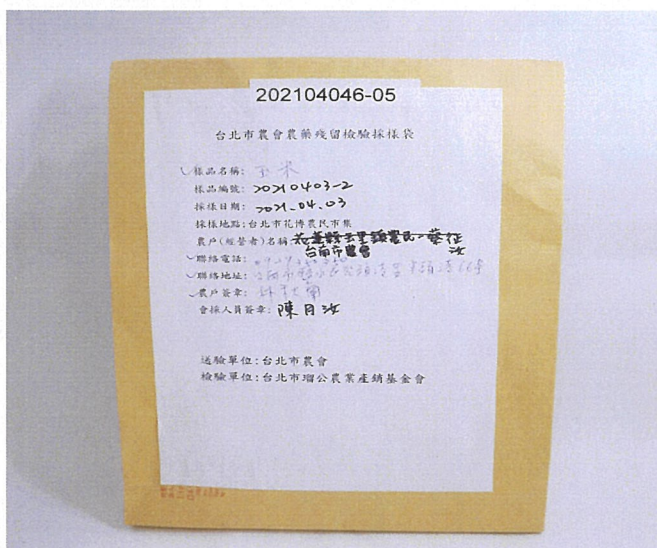 202104046-05
台北市農會農藥殘留檢驗採樣袋
樣品名稱: 玉米
樣品編號: 20210403-2
採樣日期: 2021.04.03
採樣地點:台北市花博農民市集
農戶(經營者)名稱:
台南市農會
聯絡電話:
聯絡地址:
農戶簽章:
會採人員簽章: 陳月汝
送驗單位:台北市農會
檢驗單位:台北市瑠公農業產銷基金會